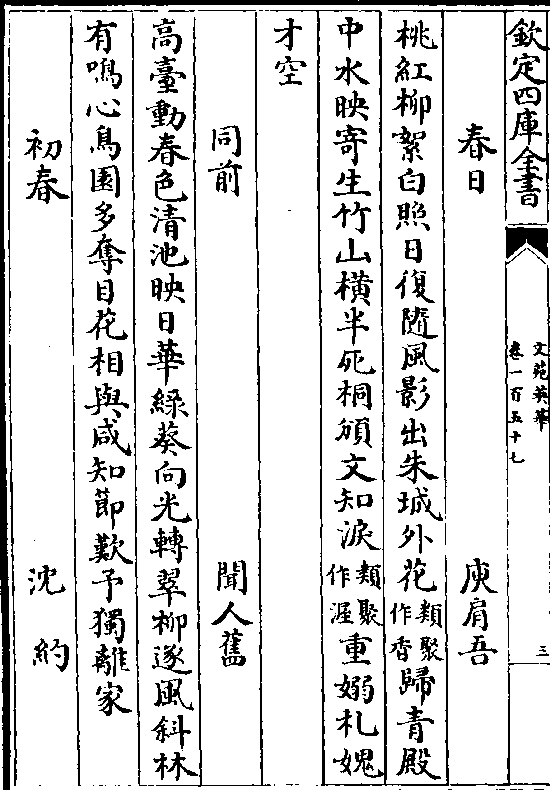 欽定四庫全書
文苑英華
卷一百五十七
三
春日 庾肩吾
桃紅柳絮白照日復隨風影出朱城外花類聚作香歸青殿
中水映寄生竹山橫半死桐頒文知淚類聚作渥重嫋札媿
才空
同前 聞人舊
高臺動春色清池映日華綠葵向光轉翠柳逐風斜林
有鳴心鳥園多奪目花相與咸知節歎予獨離家
初春 沈約